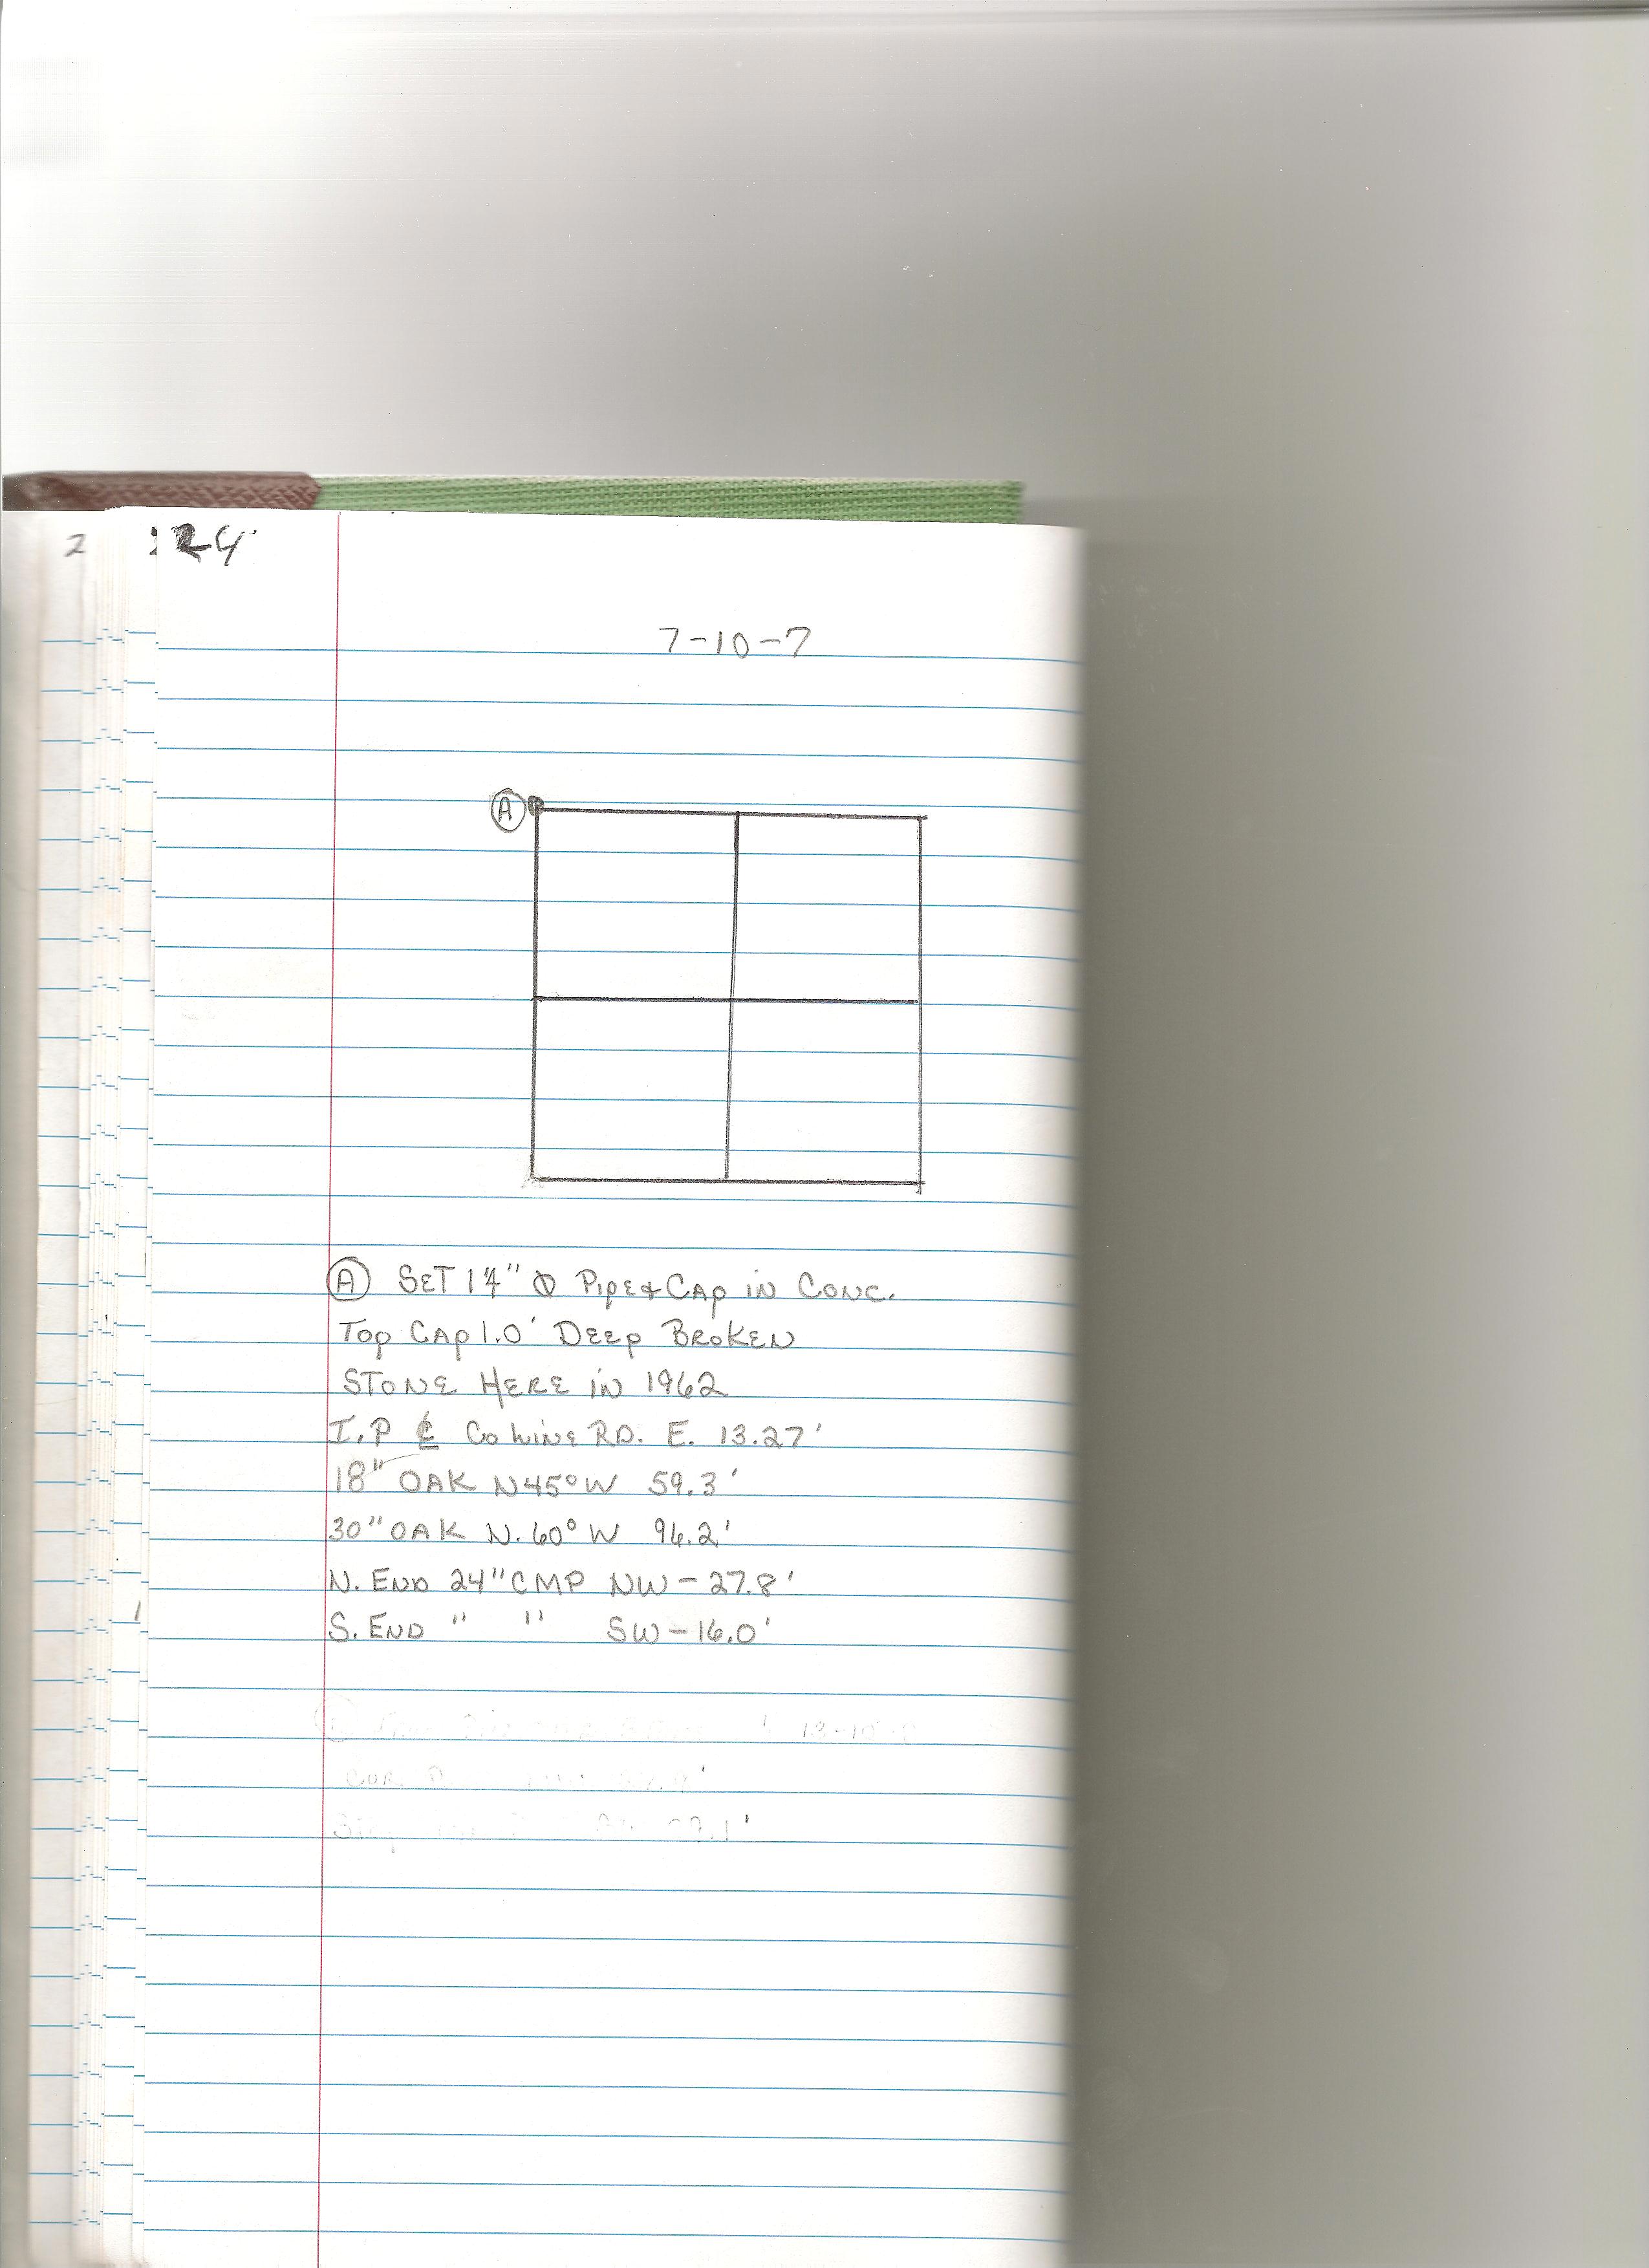 2
24
7-10-7
A
(A) SET 1¼" Φ PIPE & CAP IN CONC.
TOP CAP 1.0' DEEP BROKEN
STONE HERE IN 1962
I.P ℄ CO LINE RD. E. 13.27'
18" OAK N45°W 59.3'
30" OAK N.60°W 96.2'
N. END 24" CMP NW-27.8'
S. END " " SW-16.0'
COR.